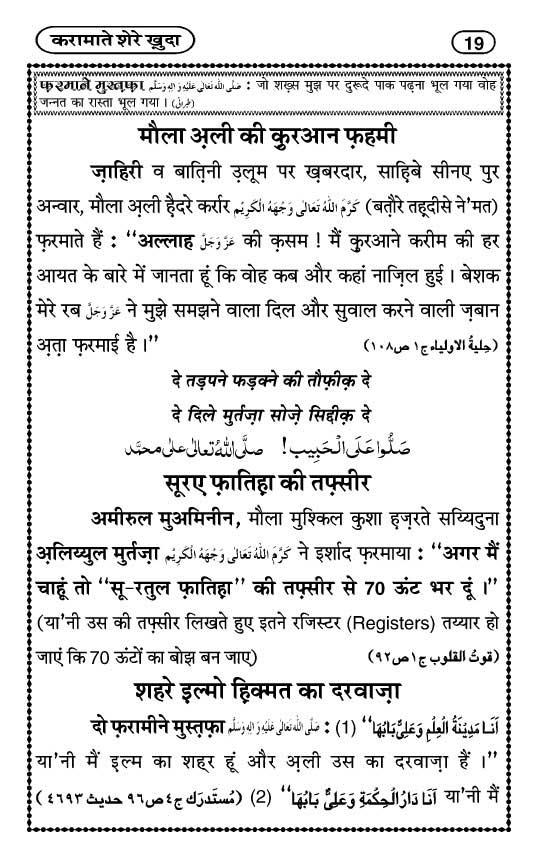 करामाते शेरे ख़ुदा
19
फ़रमाने मुस्तफ़ा صَلَّى اللهُ تَعَالٰى عَلَيْهِ وَاٰلِهٖ وَسَلَّم : जो शख़्स मुझ पर दुरूदे पाक पढ़ना भूल गया वोह
जन्नत का रास्ता भूल गया । (طبرانی)
मौला अ़ली की क़ुरआन फ़हमी
ज़ाहिरी व बातिनी उ़लूम पर ख़बरदार, साहिबे सीनए पुर
अन्वार, मौला अ़ली हैदरे कर्रार كَرَّمَ اللهُ تَعَالٰى وَجْهَهُ الْكَرِيْم (बत़ौरे तह़दीसे ने'मत)
फ़रमाते हैं : “अल्लाह عَزَّوَجَلَّ की क़सम ! मैं क़ुरआने करीम की हर
आयत के बारे में जानता हूं कि वोह कब और कहां नाज़िल हुई । बेशक
मेरे रब عَزَّوَجَلَّ ने मुझे समझने वाला दिल और सुवाल करने वाली ज़बान
अ़त़ा फ़रमाई है ।” (حلیۃُ الاولیاء ج۱ ص۱۰۸)
दे तड़पने फड़क्ने की तौफ़ीक़ दे
दे दिले मुर्तज़ा सोज़े सिद्दीक़ दे
صَلُّوا عَلَى الْحَبِيب! صلَّى اللهُ تعالٰى على محمَّد
सूरए फ़ातिह़ा की तफ़्सीर
अमीरुल मुअमिनीन, मौला मुश्किल कुशा ह़ज़रते सय्यिदुना
अ़लिय्युल मुर्तज़ा كَرَّمَ اللهُ تَعَالٰى وَجْهَهُ الْكَرِيْم ने इर्शाद फ़रमाया : “अगर मैं
चाहूं तो “सू-रतुल फ़ातिह़ा” की तफ़्सीर से 70 ऊंट भर दूं ।”
(या'नी उस की तफ़्सीर लिखते हुए इतने रजिस्टर (Registers) तय्यार हो
जाएं कि 70 ऊंटों का बोझ बन जाए) (قوتُ القلوب ج۱ص۹۲)
शहरे इल्मो ह़िक्मत का दरवाज़ा
दो फ़रामीने मुस्त़फ़ा صَلَّى اللهُ تَعَالٰى عَلَيْهِ وَاٰلِهٖ وَسَلَّم : (1) “اَنَا مَدِيْنَةُ الْعِلْمِ وَعَلِىٌّ بَابُهَا
या'नी मैं इ़ल्म का शहर हूं और अ़ली उस का दरवाज़ा हैं ।”
(مُستَدرَك ج٤ ص٩٦ حدیث ٤٦٩٣) (2) “اَنَا دَارُ الْحِكْمَةِ وَعَلِىٌّ بَابُهَا या'नी मैं